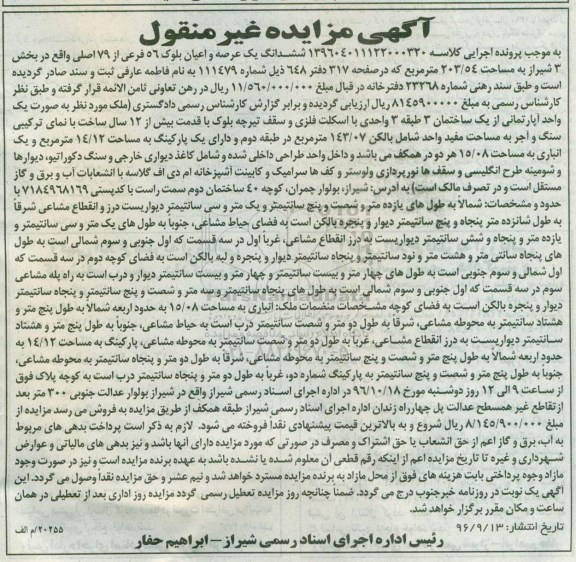 آگهی مزایده غیر منقول
به موجب پرونده اجرایی کلاسه ۱۳۹۶۰۴۰۱۱۱۲۲۰۰۰۳۲۰ ششدانگ یک عرصه و اعیان بلوک ۵۶ فرعی از ۷۹ اصلی واقع در بخش
۳ شیراز به مساحت ۲۰۳/۵۴ مترمربع که درصفحه ۳۱۷ دفتر ۶۴۸ ذیل شماره ۱۱۱۴۷۹ به نام فاطمه عارفی ثبت و سند صادر گردیده
است و طبق سند رهنی شماره ۲۳۲۶۸ دفترخانه در قبال مبلغ ۱۱/۵۶۰/۰۰۰/۰۰۰ ریال در رهن تعاونی ثامن الائمه قرار گرفته و طبق نظر
کارشناس رسمی به مبلغ ۸۱۴۵۹۰۰۰۰۰ ریال ارزیابی گردیده و برابر گزارش کارشناس رسمی دادگستری (ملک مورد نظر به صورت یک
واحد آپارتمانی از یک ساختمان ۳ طبقه ۳ واحدی با اسکلت فلزی و سقف تیرچه بلوک با قدمت بیش از ۱۲ سال ساخت با نمای ترکیبی
سنگ و آجر به مساحت مفید واحد شامل بالکن ۱۴۳/۰۷ مترمربع در طبقه دوم و دارای یک پارکینگ به مساحت ۱۴/۱۲ مترمربع و یک
انباری به مساحت ۱۵/۰۸ هر دو در همکف می باشد و داخل واحد طراحی داخلی شده و شامل کاغذ دیواری خارجی و سنگ دکوراتیو، دیوارها
و شومینه طرح انگلیسی و سقف ها نورپردازی ولوستر و کف ها سرامیک و کابینت آشپزخانه ام دی اف گلاسه با انشعابات آب و برق و گاز
مستقل است و در تصرف مالک است) به آدرس: شیراز، بولوار چمران، کوچه ۴۰ ساختمان دوم سمت راست با کدپستی ۷۱۸۴۹۶۸۱۶۹ با
حدود و مشخصات: شمالاً به طول های یازده متر و شصت و پنج سانتیمتر و یک متر و سی سانتیمتر دیواریست درز و انقطاع مشاعی شرقاً
به طول شانزده متر پنجاه و پنج سانتیمتر دیوار و پنجره بالکن است به فضای حیاط مشاعی، جنوباً به طول های یک متر و سی سانتیمتر و
یازده متر و پنجاه و شش سانتیمتر دیواریست به درز انقطاع مشاعی، غرباً اول در سه قسمت که اول جنوبی و سوم شمالی است به طول
های پنجاه سانتی متر و هشت متر و نود سانتیمتر و پنجاه سانتیمتر دیوار و پنجره و لبه بالکن است به فضای کوچه دوم در سه قسمت که
اول شمالی و سوم جنوبی است به طول های چهار متر و بیست سانتیمتر و چهار متر و بیست سانتیمتر دیوار و درب است به راه پله مشاعی
سوم در سه قسمت که اول جنوبی و سوم شمالی است به طول های پنجاه سانتیمتر و سه متر و شصت و پنج سانتیمتر و پنجاه سانتیمتر
دیوار و پنجره بالکن است به فضای کوچه مشخصات منضمات ملک: انباری به مساحت ۱۵/۰۸ به حدود اربعه شمالاً به طول پنج متر و
هشتاد سانتیمتر به محوطه مشاعی، شرقاً به طول دو متر و شصت سانتیمتر درب است به حیاط مشاعی، جنوباً به طول پنج متر و هشتاد
سانتیمتر دیواریست به درز انقطاع مشاعی، غرباً به طول دو متر و شصت سانتیمتر به محوطه مشاعی، پارکینگ به مساحت ۱۴/۱۲ به
حدود اربعه شمالاً به طول پنج متر و شصت و پنج سانتیمتر به محوطه مشاعی، شرقاً به طول دو متر و پنجاه سانتیمتر به محوطه مشاعی،
جنوباً به طول پنج متر و شصت و پنج سانتیمتر به پارکینگ شماره دو، غرباً به طول دو متر و پنجاه سانتیمتر درب است به کوچه پلاک فوق
از ساعت ۹ الی ۱۲ روز دوشنبه مورخ ۹۶/۱۰/۱۸ در اداره اجرای اسناد رسمی شیراز واقع در شیراز بولوار عدالت جنوبی ۳۰۰ متر بعد
از تقاطع غیر همسطح عدالت پل چهارراه زندان اداره اجرای اسناد رسمی شیراز طبقه همکف از طریق مزایده به فروش می رسد مزایده از
مبلغ ۸/۱۴۵/۹۰۰/۰۰۰ ریال شروع و به بالاترین قیمت پیشنهادی نقداً فروخته می شود. لازم به ذکر است پرداخت بدهی های مربوط
به آب، برق و گاز اعم از حق انشعاب یا حق اشتراک و مصرف در صورتی که مورد مزایده دارای آنها باشد و نیز بدهی های مالیاتی و عوارض
شهرداری و غیره تا تاریخ مزایده اعم از اینکه رقم قطعی آن معلوم شده یا نشده باشد به عهده برنده مزایده است و نیز در صورت وجود
مازاد وجوه پرداختی بابت هزینه های فوق از محل مازاد به برنده مزایده مسترد خواهد شد و نیم عشر و حق مزایده نقداً وصول می گردد. این
آگهی یک نوبت در روزنامه خبرجنوب درج می گردد. ضمناً چنانچه روز مزایده تعطیل رسمی گردد مزایده روز اداری بعد از تعطیلی در همان
ساعت و مکان مقرر برگزار خواهد شد.
تاریخ انتشار: ۹۶/۹/۱۳
۲۰۲۵۵/م الف
رئیس اداره اجرای اسناد رسمی شیراز – ابراهیم حفار